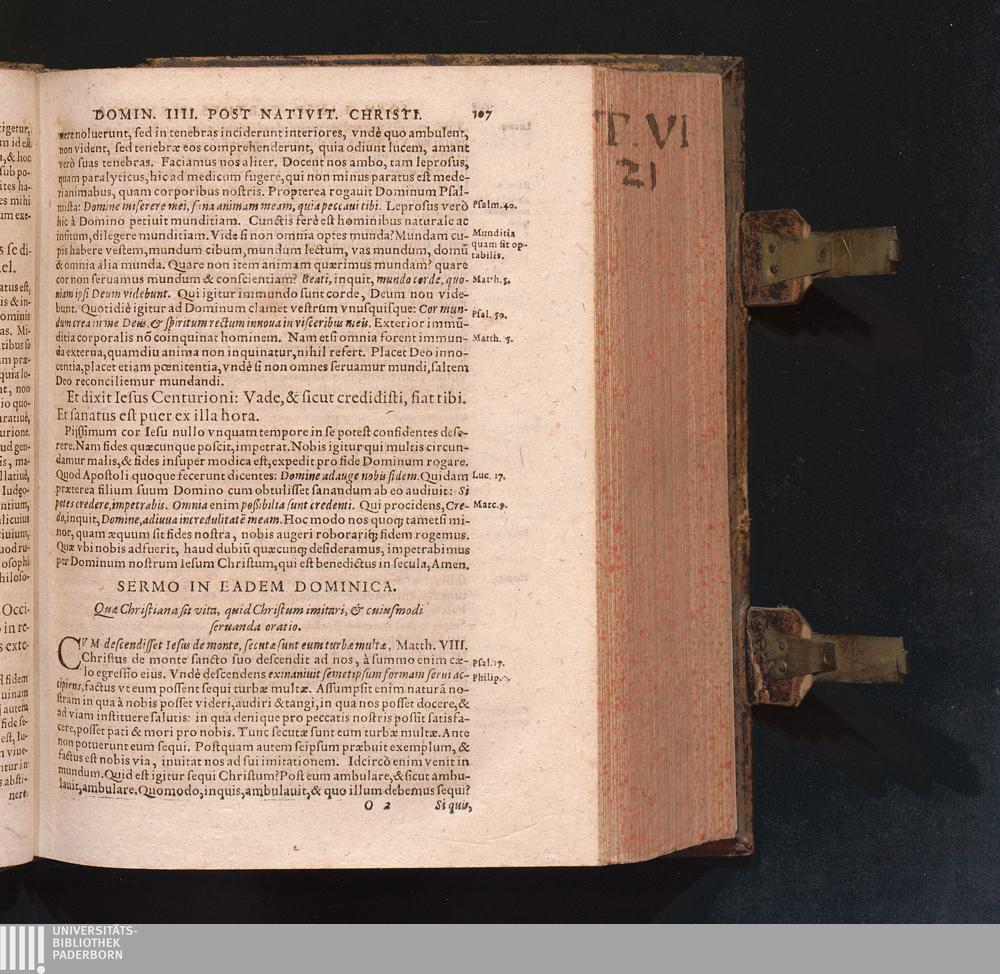 DOMIN. IIII. POST NATIVIT. CHRISTI. 107
mere noluerunt, sed in tenebras inciderunt interiores, vndè quo ambulent,
non vident, sed tenebræ eos comprehenderunt, quia odiunt lucem, amant
verò suas tenebras. Faciamus nos aliter. Docent nos ambo, tam leprosus,
quam paralyticus, hic ad medicum fugere, qui non minus paratus est mede-
ri animabus, quam corporibus nostris. Propterea rogauit Dominum Psal-
mista: Domine miserere mei, sana animam meam, quia peccaui tibi. Leprosus verò
Psalm. 40.
hic à Domino petiuit munditiam. Cunctis ferè est hominibus naturale ac
insitum, diligere munditiam. Vide si non omnia optes munda? Mundam cu-
pis habere vestem, mundum cibum, mundum lectum, vas mundum, domū
Munditia
quam sit op-
tabilis.
& omnia alia munda. Quare non item animam quærimus mundam? quare
cor non seruamus mundum & conscientiam? Beati, inquit, mundo corde, quo-
Matth. 5.
niam ipsi Deum videbunt. Qui igitur immundo sunt corde, Deum non vide-
bunt. Quotidiè igitur ad Dominum clamet vestrûm vnusquisque: Cor mun-
Psal. 50.
dum crea in me Deus, & spiritum rectum innoua in visceribus meis. Exterior immū-
ditia corporalis nō coinquinat hominem. Nam etsi omnia forent immun-
Matth. 15.
da externa, quamdiu anima non inquinatur, nihil refert. Placet Deo inno-
centia, placet etiam pœnitentia, vndè si non omnes seruamur mundi, saltem
Deo reconciliemur mundandi.
Et dixit Iesus Centurioni: Vade, & sicut credidisti, fiat tibi.
Et sanatus est puer ex illa hora.
Pijssimum cor Iesu nullo vnquam tempore in se potest confidentes dese-
rere. Nam fides quæcunque poscit, impetrat. Nobis igitur qui multis circun-
damur malis, & fides insuper modica est, expedit pro fide Dominum rogare.
Quod Apostoli quoque fecerunt dicentes: Domine adauge nobis fidem. Quidam
Luc. 17.
præterea filium suum Domino cum obtulisset sanandum ab eo audiuit: Si
potes credere, impetrabis. Omnia enim possibilia sunt credenti. Qui procidens, Cre-
Marc. 9.
do, inquit, Domine, adiuua incredulitatē meam. Hoc modo nos quoq; tametsi mi-
nor, quam æquum sit fides nostra, nobis augeri roborariq; fidem rogemus.
Quæ vbi nobis adfuerit, haud dubiū quæcunq; desideramus, impetrabimus
per Dominum nostrum Iesum Christum, qui est benedictus in secula, Amen.
SERMO IN EADEM DOMINICA.
Quæ Christiana sit vita, quid Christum imitari, & cuiusmodi
seruanda oratio.
CVM descendisset Iesus de monte, secutæ sunt eum turbæ multæ, Matth. VIII.
Christus de monte sancto suo descendit ad nos, à summo enim cæ-
Psal. 17.
lo egressio eius. Vndè descendens exinaniuit semetipsum formam serui ac-
Philip. 2.
cipiens, factus vt eum possent sequi turbæ multæ. Assumpsit enim naturā no-
stram in qua à nobis posset videri, audiri & tangi, in qua nos posset docere, &
ad viam instituere salutis: in qua denique pro peccatis nostris possit satisfa-
cere, posset pati & mori pro nobis. Tunc secutæ sunt eum turbæ multæ. Ante
non potuerunt eum sequi. Postquam autem seipsum præbuit exemplum, &
factus est nobis via, inuitat nos ad sui imitationem. Idcircò enim venit in
mundum. Quid est igitur sequi Christum? Post eum ambulare, & sicut ambu-
lauit, ambulare. Quomodo, inquis, ambulauit, & quo illum debemus sequi?
O 2 Si quis,
T. VI
21
UNIVERSITÄTS-
BIBLIOTHEK
PADERBORN